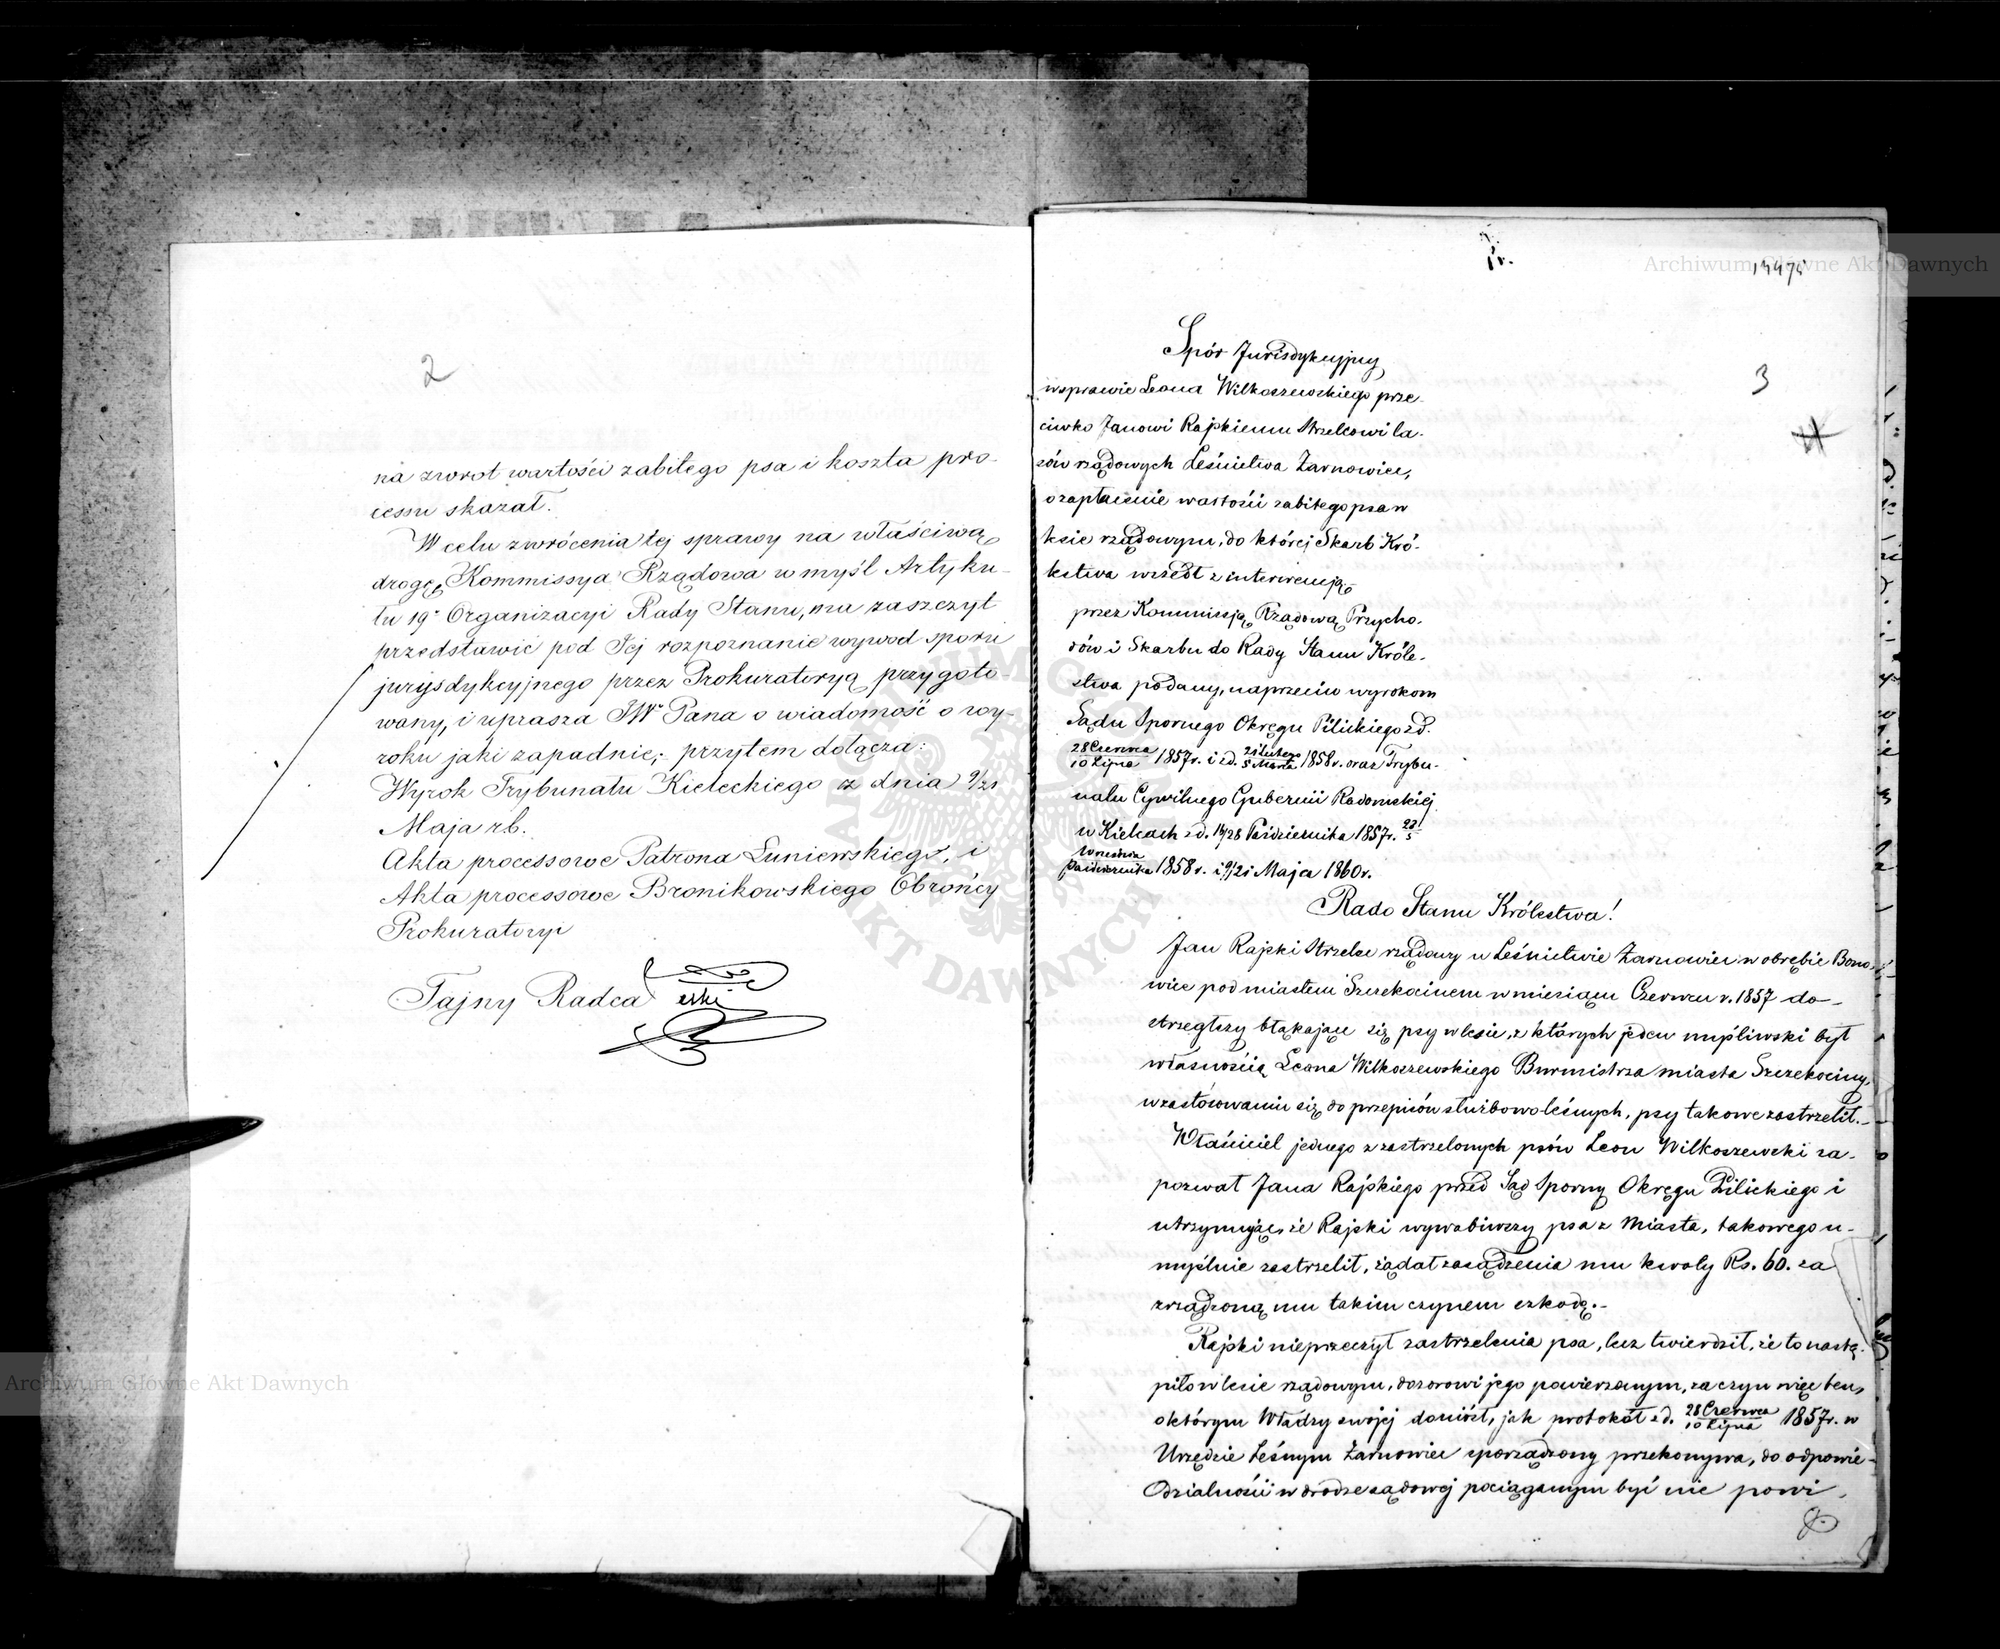 2
na zwrot wartości zabitego psa i koszta pro-
cessu skazał.
W celu zwrócenia tej sprawy na właściwą
drogę, Kommissya Rządowa w myśl Artyku-
łu 19º Organizacyi Rady Stanu, ma zaszczyt
przedstawić pod Jej rozpoznanie wywod sporu
jurysdykcyjnego przez Prokuratoryą przygoto-
wany, i uprasza JW Pana o wiadomość o wy-
roku jaki zapadnie; przytem dołącza:
Wyrok Trybunału Kieleckiego z dnia 9/21
Maja rb.
Akta processowe Patrona Łuniewskiego, i
Akta processowe Bronikowskiego Obrońcy
Prokuratoryi
Tajny Radca
3
Spór Jurisdykcyjny
w sprawie Leona Wilkoszewskiego prze-
ciwko Janowi Rajskiemu Strzelcowi la-
sów rządowych Leśnictwa Żarnowiec,
o zapłacenie wartości zabitego psa w
lesie rządowym, do której Skarb Kró-
lestwa wszedł z interwencją
przez Kommissją Rządową Przycho-
dów i Skarbu do Rady Stanu Króle-
stwa podany, naprzeciw wyrokom
Sądu Spornego Okręgu Pilickiego z d.
28 Czerwca/10 Lipca 1857r. i z d. 21 Lutego/5 Marca 1858r. oraz Trybu-
nału Cywilnego Gubernii Radomskiej
w Kielcach z d. 16/28 Października 1857r. 23/5
Września/Października 1858r. i 9/21 Maja 1860r.
Rado Stanu Królestwa!
Jan Rajski Strzelec rządowy w Leśnictwie Żarnowiec w obrębie Bono-
wice pod miastem Szczekocinem w miesiącu Czerwcu r. 1857 do-
strzegłszy błąkające się psy w lesie, z których jeden myśliwski był
własnością Leona Wilkoszewskiego Burmistrza miasta Szczekociny,
w zastosowaniu się do przepisów służbowo leśnych, psy takowe zastrzelił.-
Właściciel jednego z zastrzelonych psów Leon Wilkoszewski za-
pozwał Jana Rajskiego przed Sąd Sporny Okręgu Pilickiego i
utrzymując, że Rajski wywabiwszy psa z miasta, takowego u-
myślnie zastrzelił, żądał zasądzenia mu kwoty Rs. 60. za
zrządzoną mu takim czynem szkodę.-
Rajski nieprzeczył zastrzelenia psa, lecz twierdził, że to nastą-
piło w lesie rządowym, dozorowi jego powierzonym, za czyn więc ten,
o którym Władzy swojej doniósł, jak protokół z d. 28 Czerwca/10 Lipca 1857r. w
Urzędzie Leśnym Żarnowiec sporządzony przekonywa, do odpowie-
dzialności w drodze sądowej pociąganym być nie powi-
Archiwum Główne Akt Dawnych
Archiwum Główne Akt Dawnych